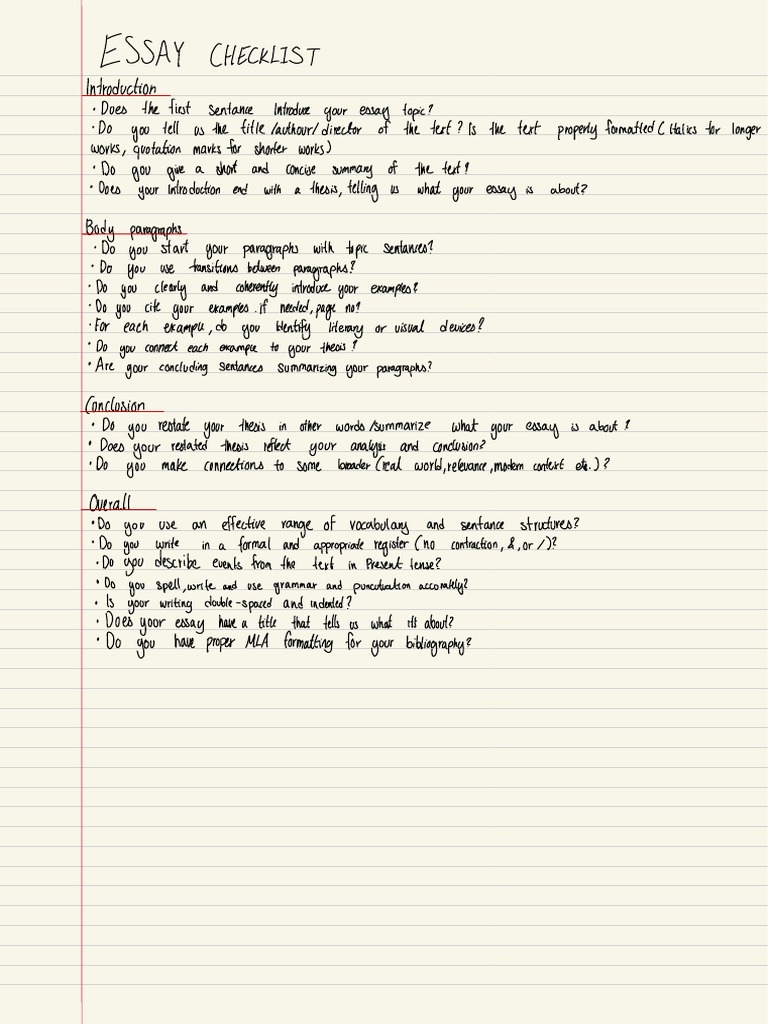 ESSAY CHECKLIST
Introduction
• Does the first sentence introduce your essay topic?
• Do you tell us the title/authour/director of the text? Is the text properly formatted (italics for longer
works, quotation marks for shorter works)
• Do you give a short and concise summary of the text?
• Does your introduction end with a thesis, telling us what your essay is about?
Body paragraphs
• Do you start your paragraphs with topic sentences?
• Do you use transitions between paragraphs?
• Do you clearly and coherently introduce your examples?
• Do you cite your examples. if needed, page no?
• For each example, do you identify literary or visual devices?
• Do you connect each example to your thesis?
• Are your concluding sentences summarizing your paragraphs?
Conclusion
• Do you restate your thesis in other words/summarize what your essay is about?
• Does your restated thesis reflect your analysis and conclusion?
• Do you make connections to some broader (real world, relevance, modern context etc.)?
Overall
• Do you use an effective range of vocabulary and sentence structures?
• Do you write in a formal and appropriate register (no contraction, &, or /)?
• Do you describe events from the text in present tense?
• Do you spell, write and use grammar and punctuation accurately?
• Is your writing double-spaced and indented?
• Does your essay have a title that tells us what it's about?
• Do you have proper MLA formatting for your bibliography?